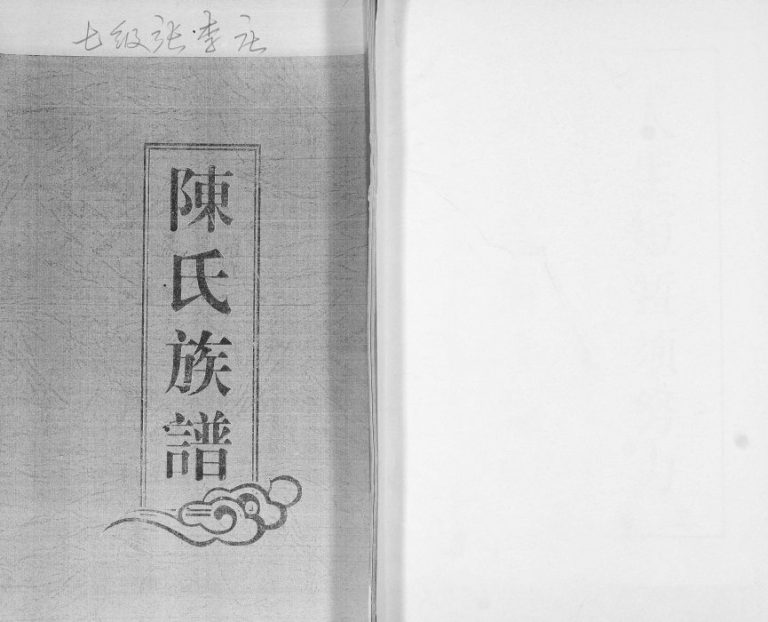 七级张·李庄
陳氏族譜